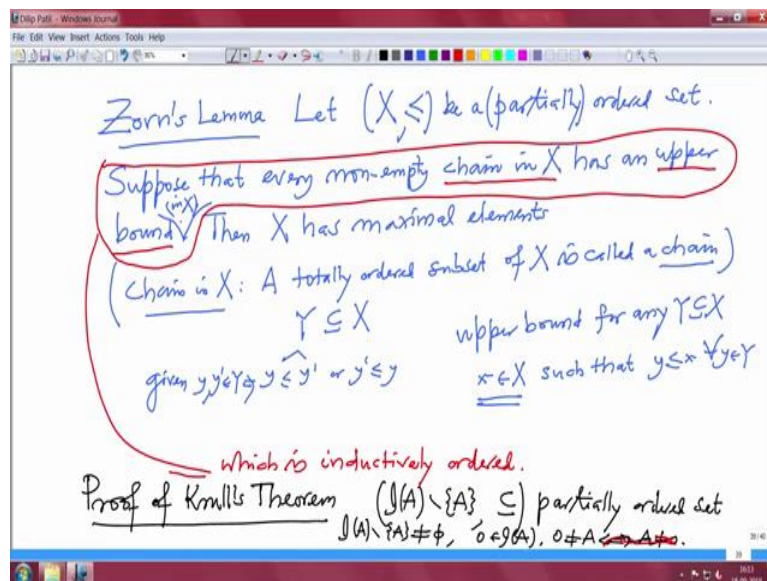 Dilip Patil - Windows Journal
File Edit View Insert Actions Tools Help
Zorn's Lemma Let (X, ≤) be a (partially) ordered set.
Suppose that every non-empty chain in X has an upper
(in X)
bound. Then X has maximal elements
(Chain in X: A totally ordered subset of X is called a chain)
Y ⊆ X
upper bound for any Y ⊆ X
given y, y' ∈ Y ⇒ y ≤ y' or y' ≤ y
x ∈ X such that y ≤ x ∀ y ∈ Y
which is inductively ordered.
Proof of Krull's Theorem (I(A) \ {A}, ⊆) partially ordered set
I(A) \ {A} ≠ ∅, 0 ∈ I(A), 0 ≠ A
39/40
39
16:13